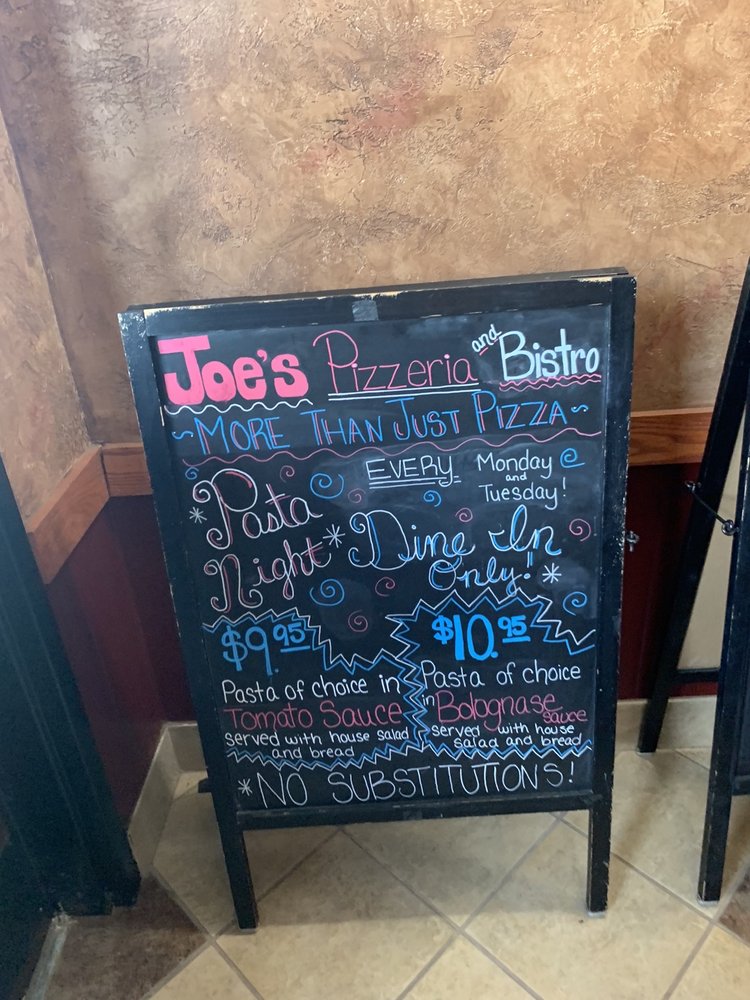 Joe's Pizzeria and Bistro
~MORE THAN JUST PIZZA~
Pasta Night
EVERY Monday and Tuesday!
* Dine In Only! *
$9.95
Pasta of choice in
Tomato Sauce
served with house salad
and bread
$10.95
Pasta of choice
in Bolognase sauce
served with house
salad and bread
*NO SUBSTITUTIONS!